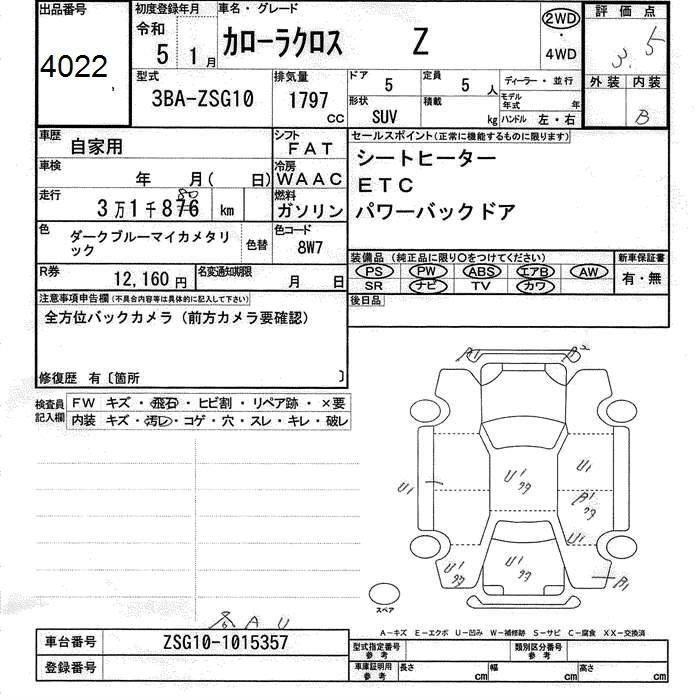 出品番号
4022
初度登録年月
令和
5 1月
車名・グレード
カローラクロス Z
2WD
・
4WD
評価点
3.5
外装 内装
B
型式
3BA-ZSG10
排気量
1797
cc
ドア 5
定員 5 人
ディーラー・並行
形状 SUV
積載 kg
モデル年式 年
ハンドル 左・右
車歴
自家用
シフト
FAT
車検
年 月( 日)
冷房
WAAC
走行
3万1千876 km
80
燃料
ガソリン
色
ダークブルーマイカメタリック
色替
色コード
8W7
R券
12,160円
名変通知期限
月 日
セールスポイント(正常に機能するものに限ります)
シートヒーター
ETC
パワーバックドア
装備品(純正品に限り○をつけてください)
新車保証書
PS PW ABS エアB AW
SR ナビ TV カワ
有・無
後日品
注意事項申告欄(不具合内容等は具体的に記入して下さい)
全方位バックカメラ(前方カメラ要確認)
修復歴 有〔箇所 〕
検査員記入欄
FW キズ・飛石・ヒビ割・リペア跡・×要
内装 キズ・汚レ・コゲ・穴・スレ・キレ・破レ
A1
U1
U1
U1
A1
U1
U1
U1
A1
スペア
A U
A-キズ E-エクボ U-凹み W-補修跡 S-サビ C-腐食 XX-交換済
車台番号
ZSG10-1015357
登録番号
型式指定番号
参考
類別区分番号
参考
車庫証明用
参考
長さ cm
幅 cm
高さ cm